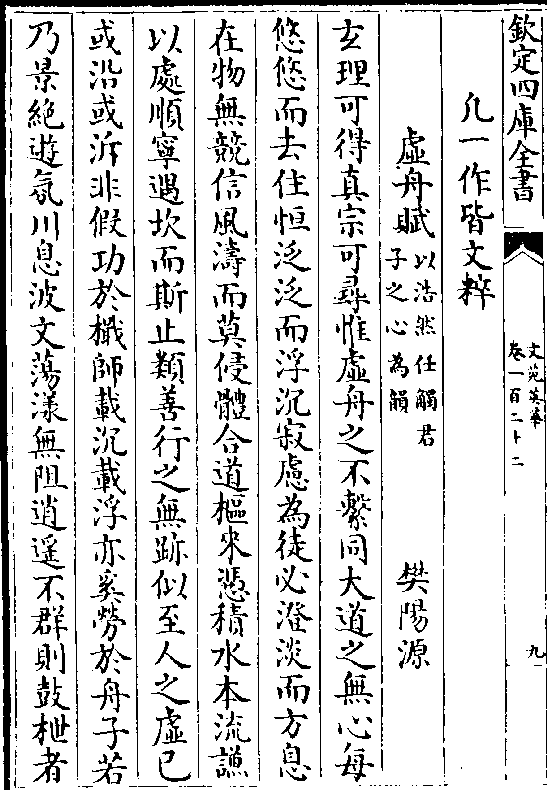 欽定四庫全書
文苑英華
卷一百二十二
九
凣一作皆文粹
虛舟賦以浩然任觸君子之心為韻 樊陽源
玄理可得真宗可尋惟虛舟之不繫同大道之無心每
悠悠而去住恒泛泛而浮沉寂慮為徒必澄淡而方息
在物無競信風濤而莫侵體合道樞來憑積水本流謙
以處順寧遇坎而斯止類善行之無跡似至人之虛已
或沿或泝非假功於檝師載沉載浮亦奚勞於舟子若
乃景絶遊氛川息波文蕩漾無阻逍遥不群則鼓枻者